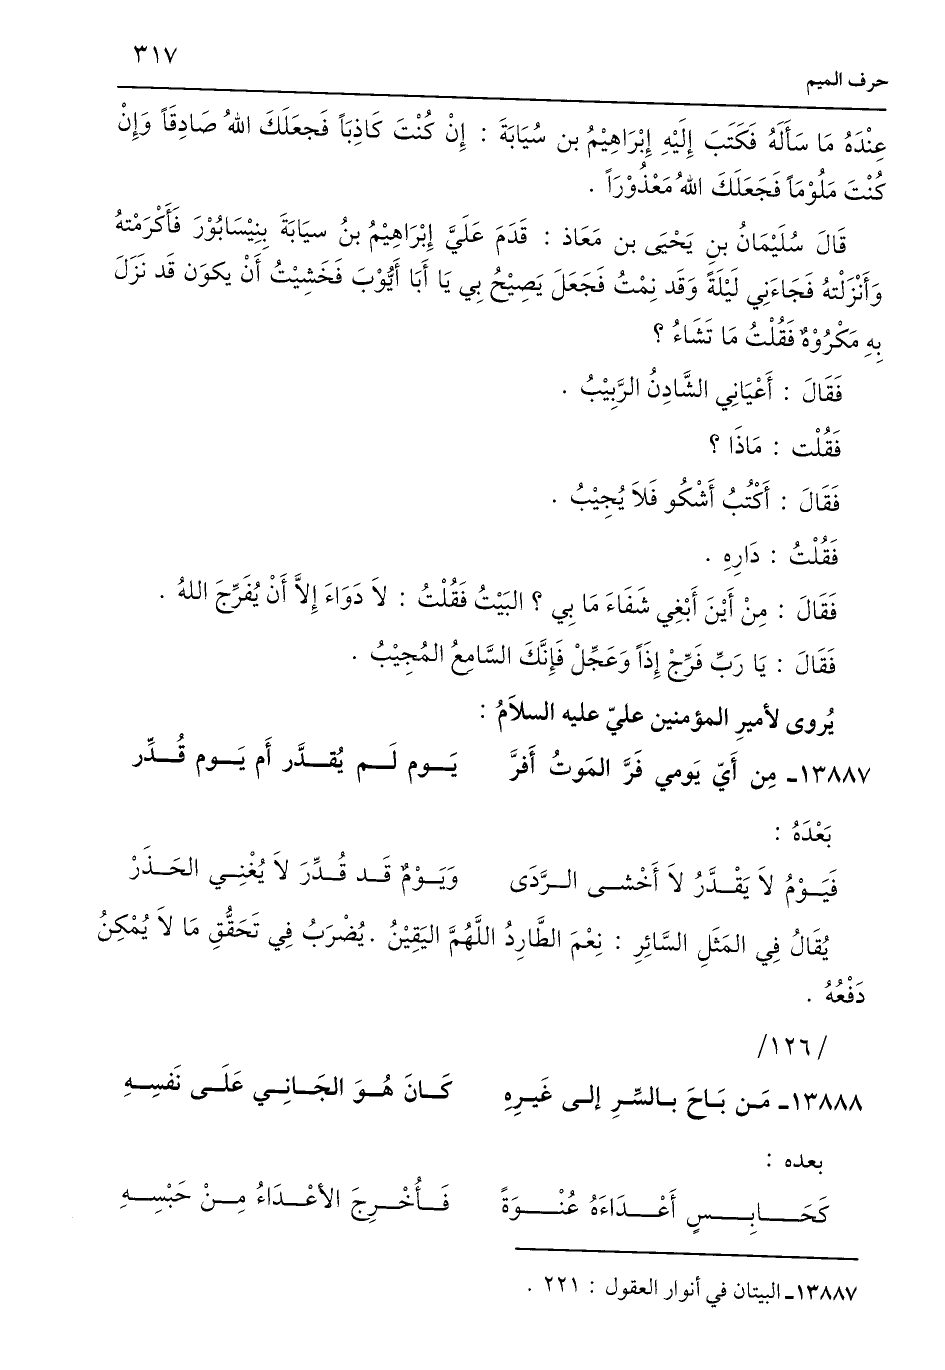 ٣١٧
حرف الميم
عِنْدَهُ مَا سَأَلَهُ فَكَتَبَ إِلَيْهِ إِبْرَاهِيْمُ بن سُيَابَةَ : إِنْ كُنْتَ كَاذِبَاً فَجعَلَكَ اللهُ صَادِقَاً وَإِنْ
كُنْتَ مَلُوْمَاً فَجَعَلَكَ اللهُ مَعْذُوْرَاً .
قَالَ سُلِيْمَانُ بنِ يَحْيَى بن مَعَاذ : قَدَمَ عَلَيَّ إِبْرَاهِيْمُ بنُ سيَابَةَ بِنِيْسَابُوْرَ فَأَكْرَمْتهُ
وَأَنْزَلْتهُ فَجاءَنِي لَيْلَةً وَقَد نِمْتُ فَجعَلَ يَصِيْحُ بِي يَا أَبَا أَيُّوْبَ فَخَشِيْتُ أَنْ يكوَن قَد نَزَلَ
بِهِ مَكْرُوْهٌ فَقُلْتُ مَا تَشَاءُ ؟
فَقَالَ : أَعْيَانِي الشَّادِنُ الرَّبِيْبُ .
فَقُلْت : مَاذَا ؟
فَقَالَ : أَكْتُبُ أَشْكُو فَلاَ يُجِيْبُ .
فَقُلْتُ : دَارِهِ .
فَقَالَ : مِنْ أَيْنَ أَبْغِي شَفَاءَ مَا بِي ؟ البَيْتُ فَقُلْتُ : لاَ دَوَاءَ إِلاَّ أَنْ يُفَرِّجَ اللهُ .
فَقَالَ : يَا رَبِّ فَرِّجْ إِذَاً وَعَجِّلْ فَإِنَّكَ السَّامِعُ المُجِيْبُ .
يُروى لأميرِ المؤمنين عليّ عليه السلاَمُ :
١٣٨٨٧ـ مِن أَيّ يَومي فَرَّ المَوتُ أَفرَّ يَـوم لَـم يُقـدَّر أَم يَـوم قُـدِّر
بَعْدَهُ :
فَيَـوْمُ لاَ يَقْـدَّرُ لاَ أَخْشـى الـرَّدَى وَيَـوْمٌ قَـد قُـدِّرَ لاَ يُغْنِـي الحَـذَرْ
يُقَالُ فِي المَثَلِ السَّائِرِ : نِعْمَ الطَّارِدُ اللَّهُمَّ اليَقِيْنُ . يُضْرَبُ فِي تَحَقُّقِ مَا لاَ يُمْكِنُ
دَفْعُهُ .
/١٢٦/
١٣٨٨٨ـ مَـن بَـاحَ بـالسِّـرِ إلـى غَيـرِهِ كَـانَ هُـوَ الجَـانِـي عَلَـى نَفسِـهِ
بعده :
كَحَـابِـسٍ أَعْـدَاءَهُ عُنْـوَةً فَـأُخْـرِجَ الأعْـدَاءُ مِـنْ حَبْسِـهِ
١٣٨٨٧ـ البيتان في أنوار العقول : ٢٢١ .